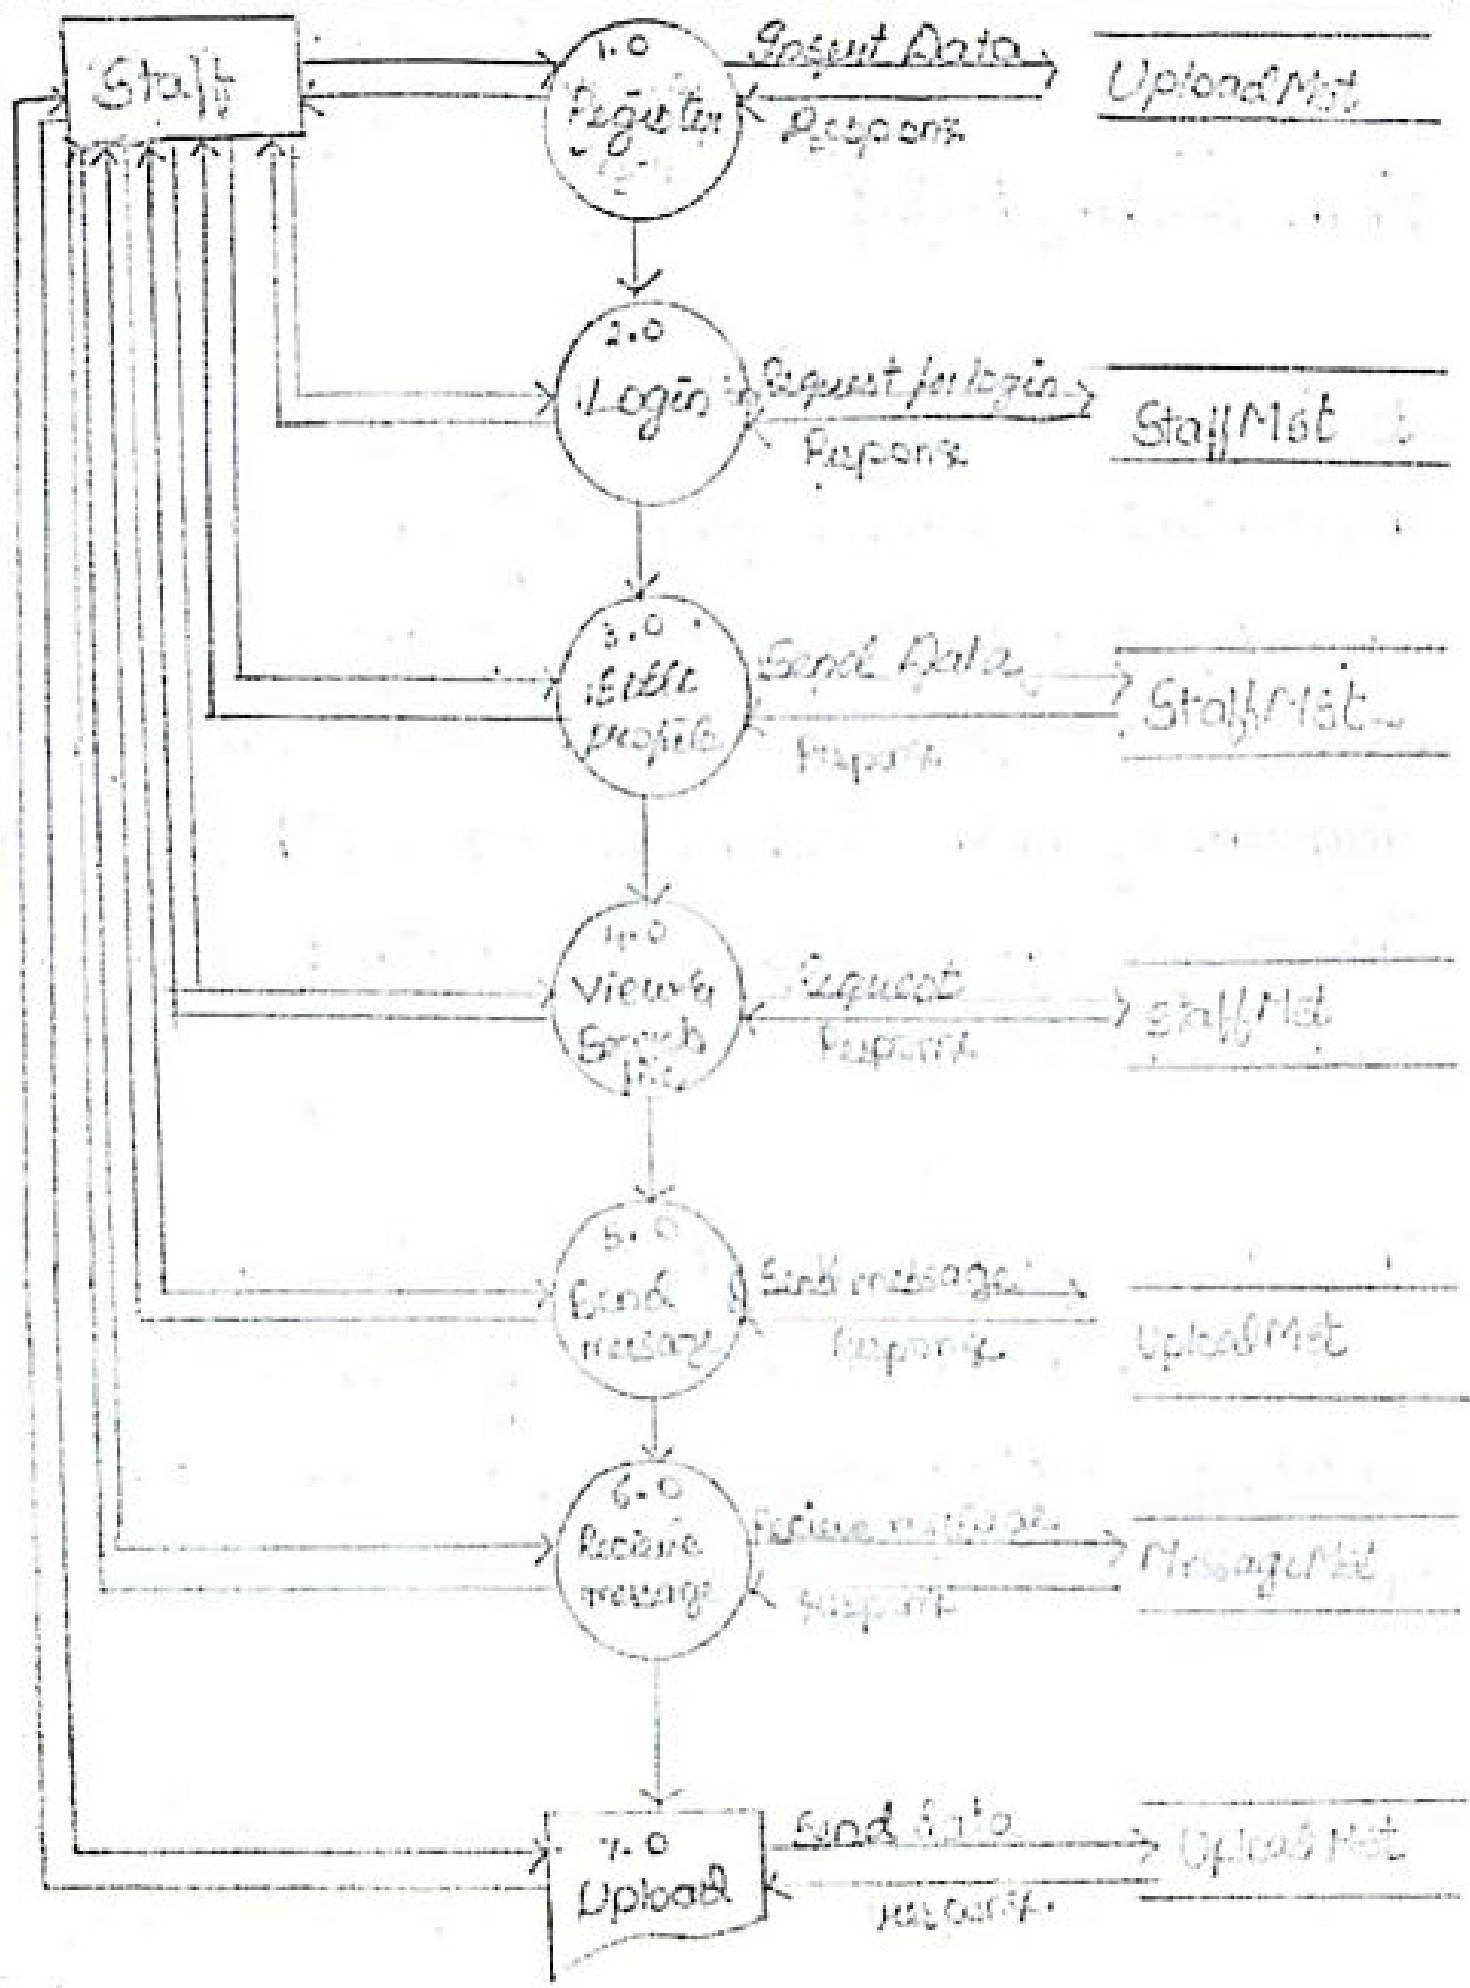 Staff
1.0
Register
Insert Data
Response
UploadMst
2.0
Login
Request for login
Response
StaffMst
3.0
profile
Send Data
Response
StaffMst
4.0
View &
Request
Response
StaffMst
5.0
Send
message
Send message
Response
UploadMst
6.0
Recieve
message
Recieve message
Response
MessageMst
7.0
Upload
Send data
response
UploadMst